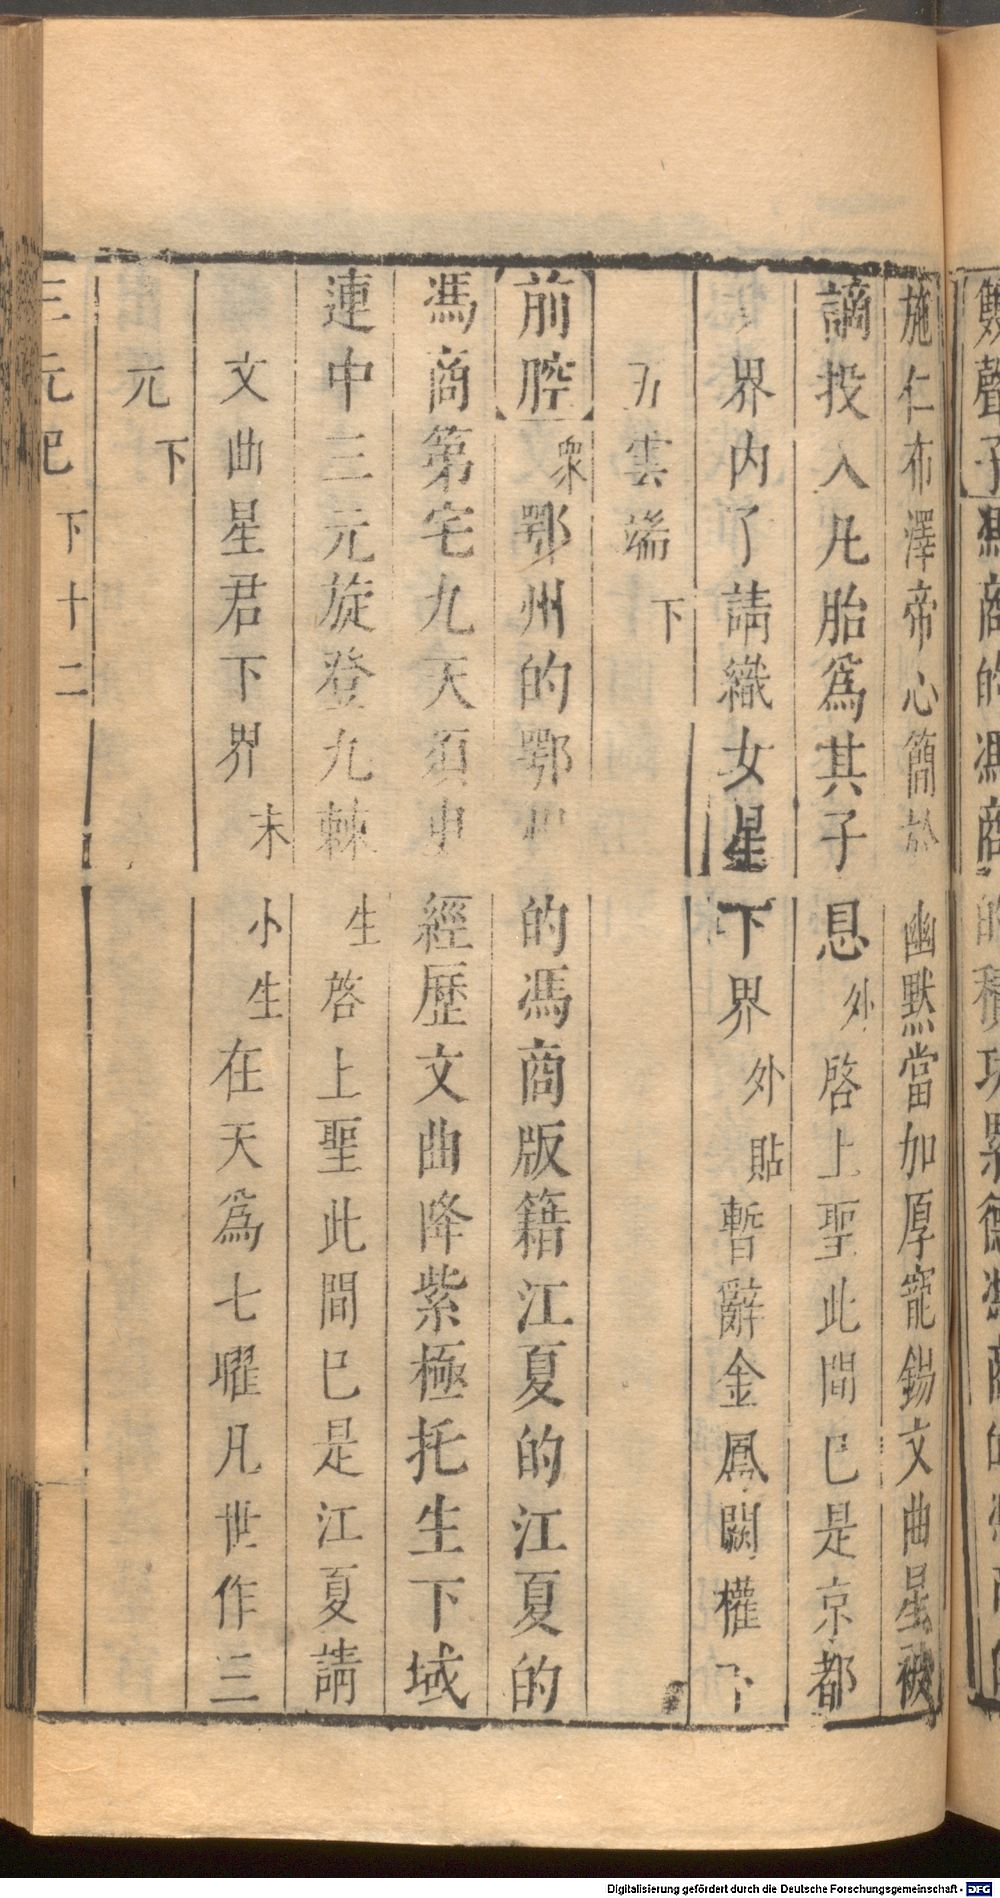 施仁布澤帝心簡於幽默當加厚寵錫文曲星被
謫投入凡胎爲其子息外啓上聖此間已是京都
界內了請織女星下界外貼暫辭金鳳闕權下
五雲端下
前腔衆鄂州的鄂州的馮商版籍江夏的江夏的
馮商第宅九天須申經歷文曲降紫極托生下域
連中三元旋登九棘生啓上聖此間已是江夏請
文曲星君下界末小生在天爲七曜凡世作三
元下
三元記下十二
Digitalisierung gefördert durch die Deutsche Forschungsgemeinschaft - DFG